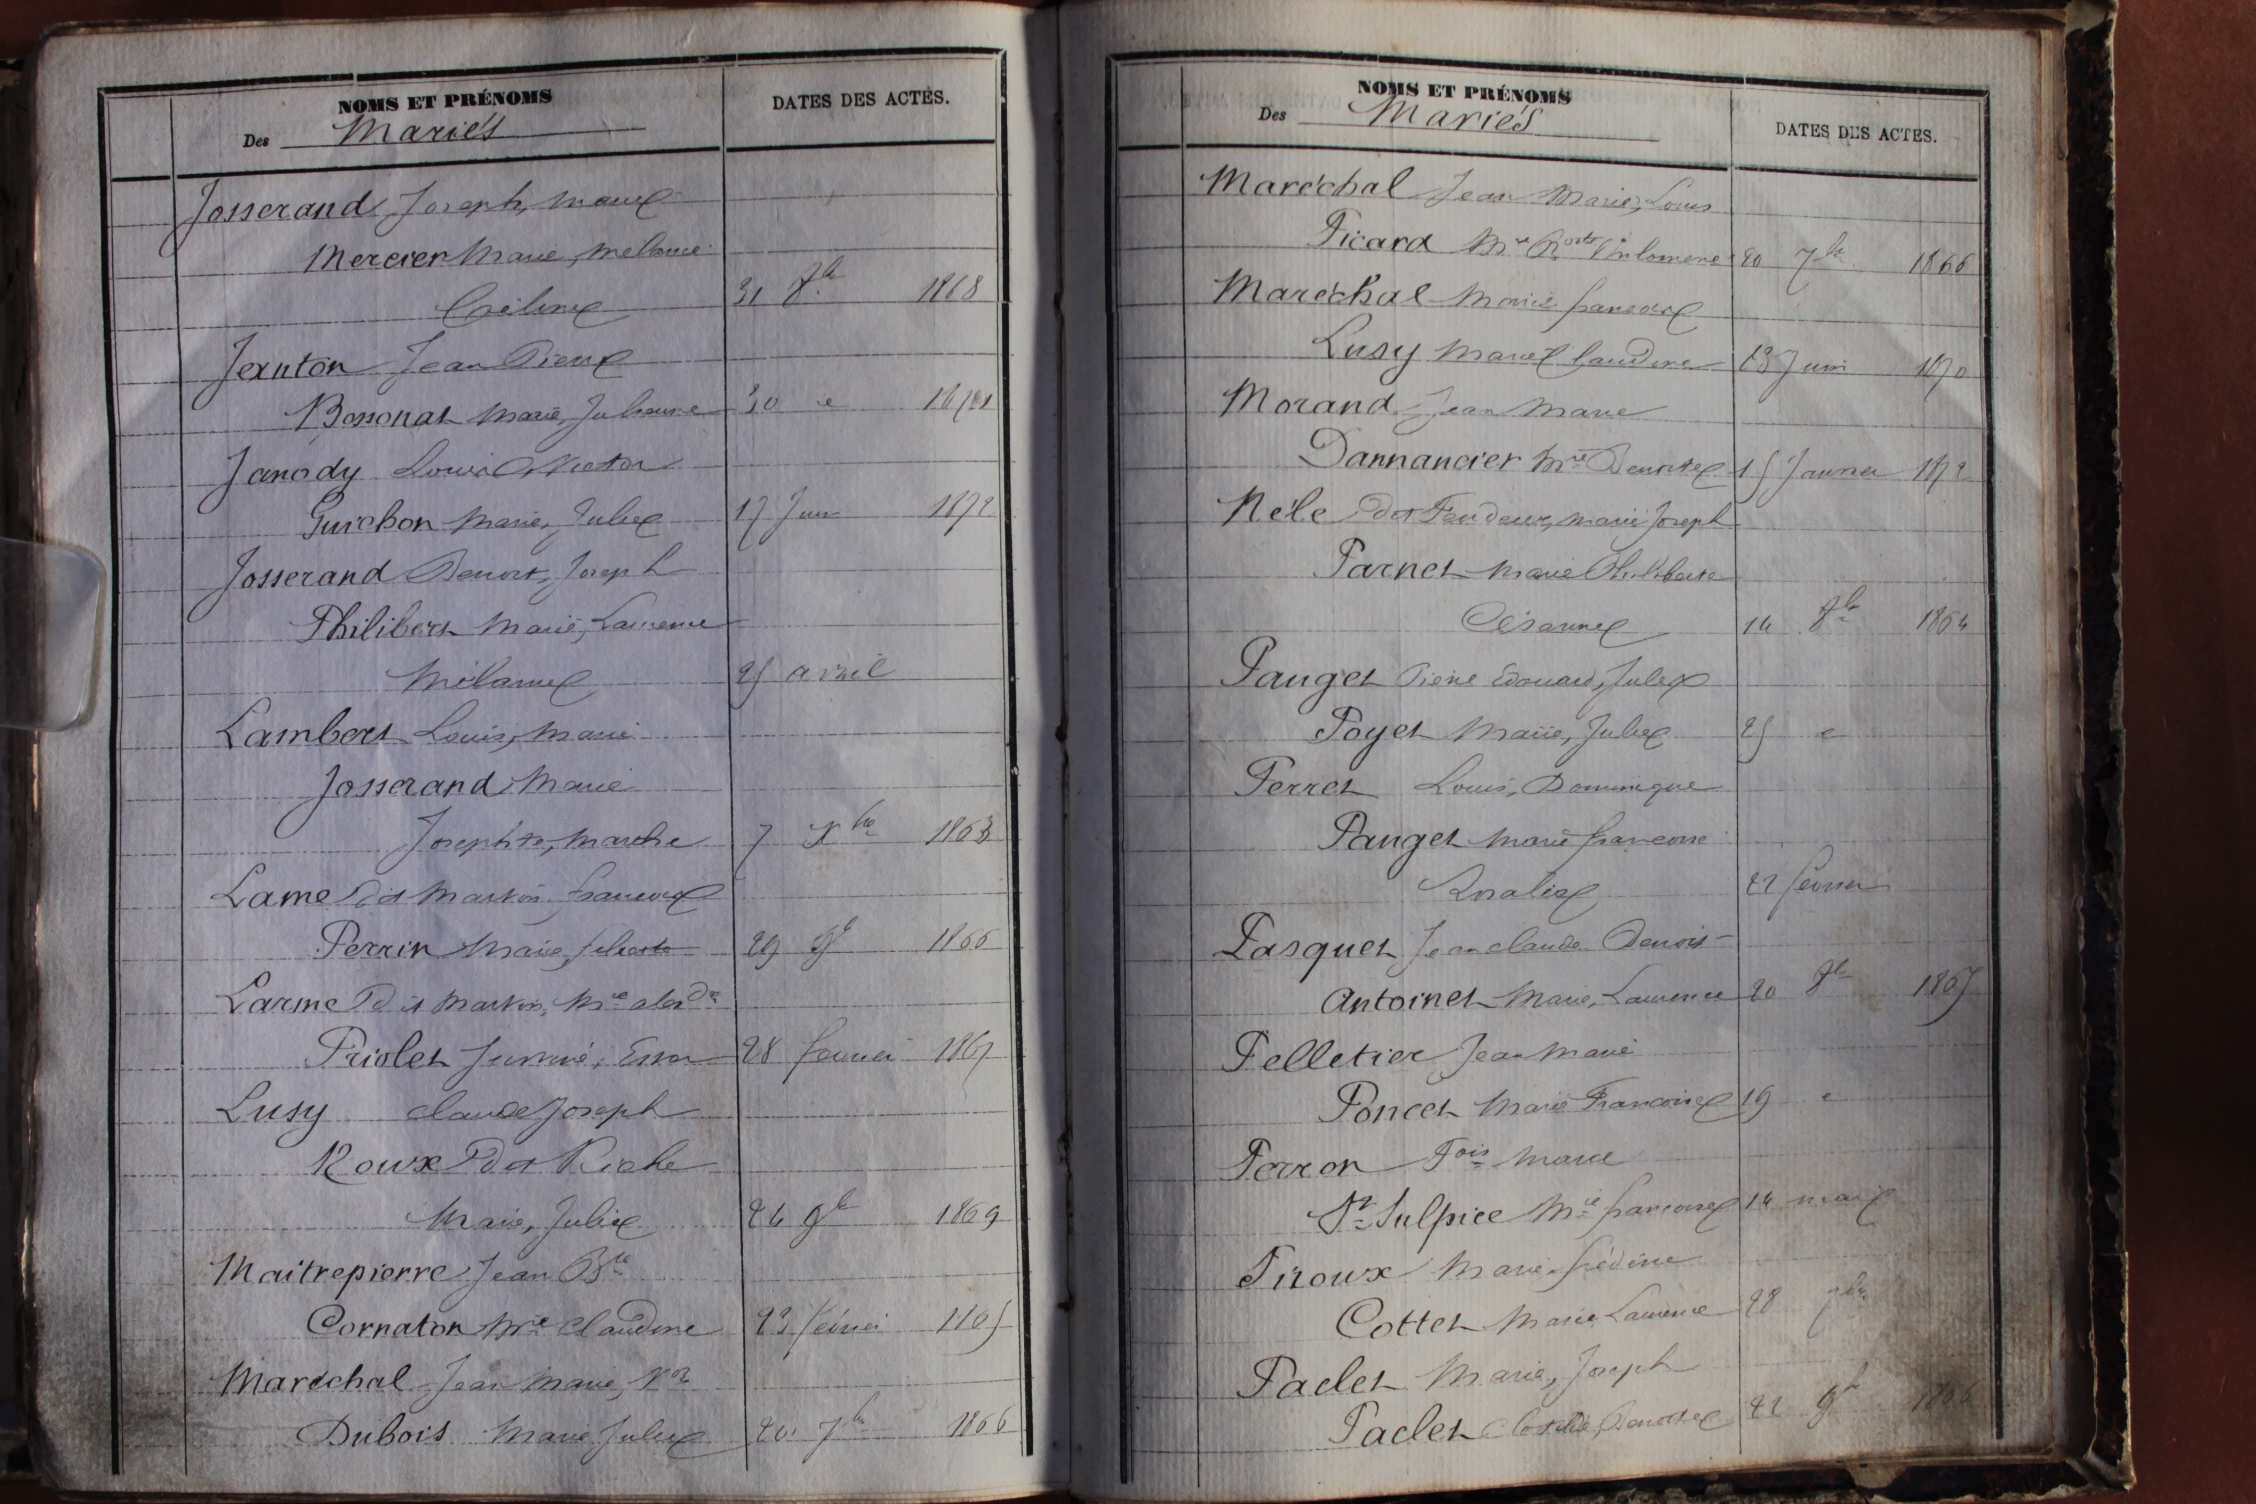 NOMS ET PRÉNOMS
Des Mariés
DATES DES ACTES.
Josserand, Joseph, Marie
Mercier Marie, Mélanie
31 8bre 1868
Jexuton Jean Pierre
Bossonat Marie, Julienne 30 "
Janody Louis Victor
Guichon Marie, Julie 17 Juin 1872
Josserand Benoit, Joseph
Philibert Marie, Laurence
Mélanie 25 avril
Lambert Louis, Marie
Josserand Marie
Josephte, Marthe 7 Xbre 1863
Larme dit Marton françois
Perrin Marie 29 9b 1866
Larme dit Marton, Mie
Priolet 28 février 1867
Lusy Claude Joseph
Roux dit Riche
Marie, Julie 24 9b 1869
Maitrepierre Jean Bte
Cornaton Mie Claudine 23 février 1865
Maréchal Jean Marie, Vor
Dubois Marie Julie 20 7b 1866
NOMS ET PRÉNOMS
Des Mariés
DATES DES ACTES.
Maréchal Jean Marie, Louis
Picard Mie Philomène 20 7bre 1866
Maréchal Marie françois
Lusy Marie Claudine 13 Juin 1870
Morand Jean Marie
Dannancier Mie Benoite 15 Janvier 1872
Nèle dit Fandeur, Marie Joseph
Parnet Marie Philiberte
Césarine 14 8bre 1864
Pauget Pierre Edouard, Jules
Poyet Marie, Julie 25 "
Perret Louis, Dominique
Pauget Marie françoise
Rosalie 22 février
Pasquet Jean Claude Benoit
Antoinet Marie, Laurence 20 8b 1865
Pelletier Jean Marie
Poncet Marie Françoise 19 "
Perron Fois Marie
St Sulpice Mie françoise 14 mai
Piroux Marie frédéric
Cottet Marie Laurence 28 7bre
Paclet Marie, Joseph
Paclet Clotilde, Benoite 22 9b 1866